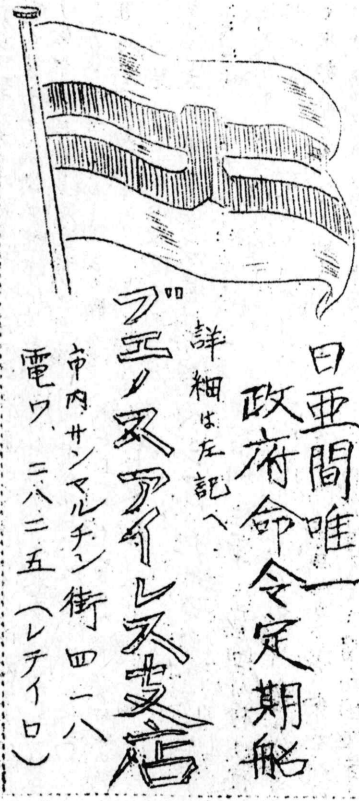 日亜間唯一
政府命令定期船
詳細は左記へ
ブエノスアイレス支店
市内サンマルチン街四一八
電ワ、二八二五(レテイロ)